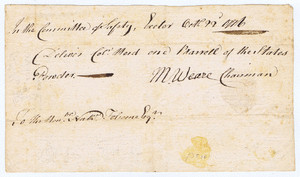 In the Committee of Safety, Exeter Octr 1776
Deliver Colo Hunt one Barrell of the States
Powder.
M Weare Chairman
To the Honl Nathl Folsom Esqr